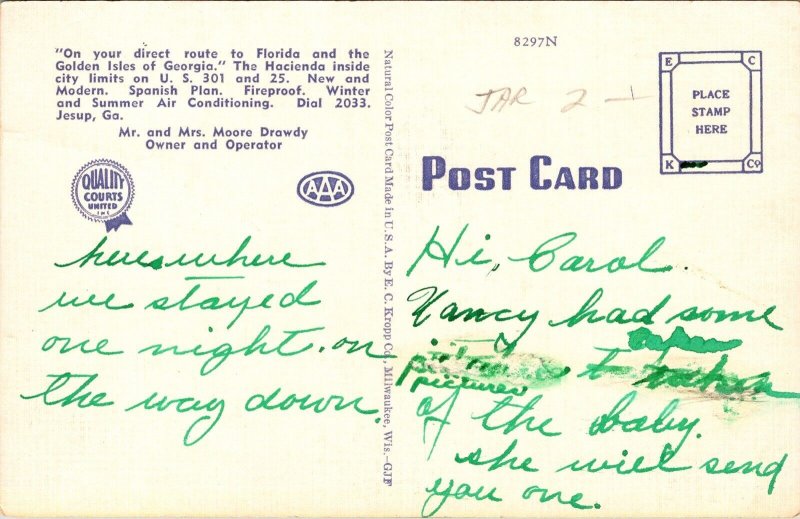 "On your direct route to Florida and the
Golden Isles of Georgia." The Hacienda inside
city limits on U. S. 301 and 25. New and
Modern. Spanish Plan. Fireproof. Winter
and Summer Air Conditioning. Dial 2033.
Jesup, Ga.
Mr. and Mrs. Moore Drawdy
Owner and Operator
QUALITY
COURTS
UNITED
INC
AAA
hereswhere
we stayed
one night on
the way down.
Natural Color Post Card Made in U. S. A. By E. C. Kropp Co., Milwaukee, Wis.—GJF
8297N
JAR 2 -
E C
PLACE
STAMP
HERE
K Co
POST CARD
Hi, Carol.
Nancy had some
taken
pictures
of the baby.
she will send
you one.